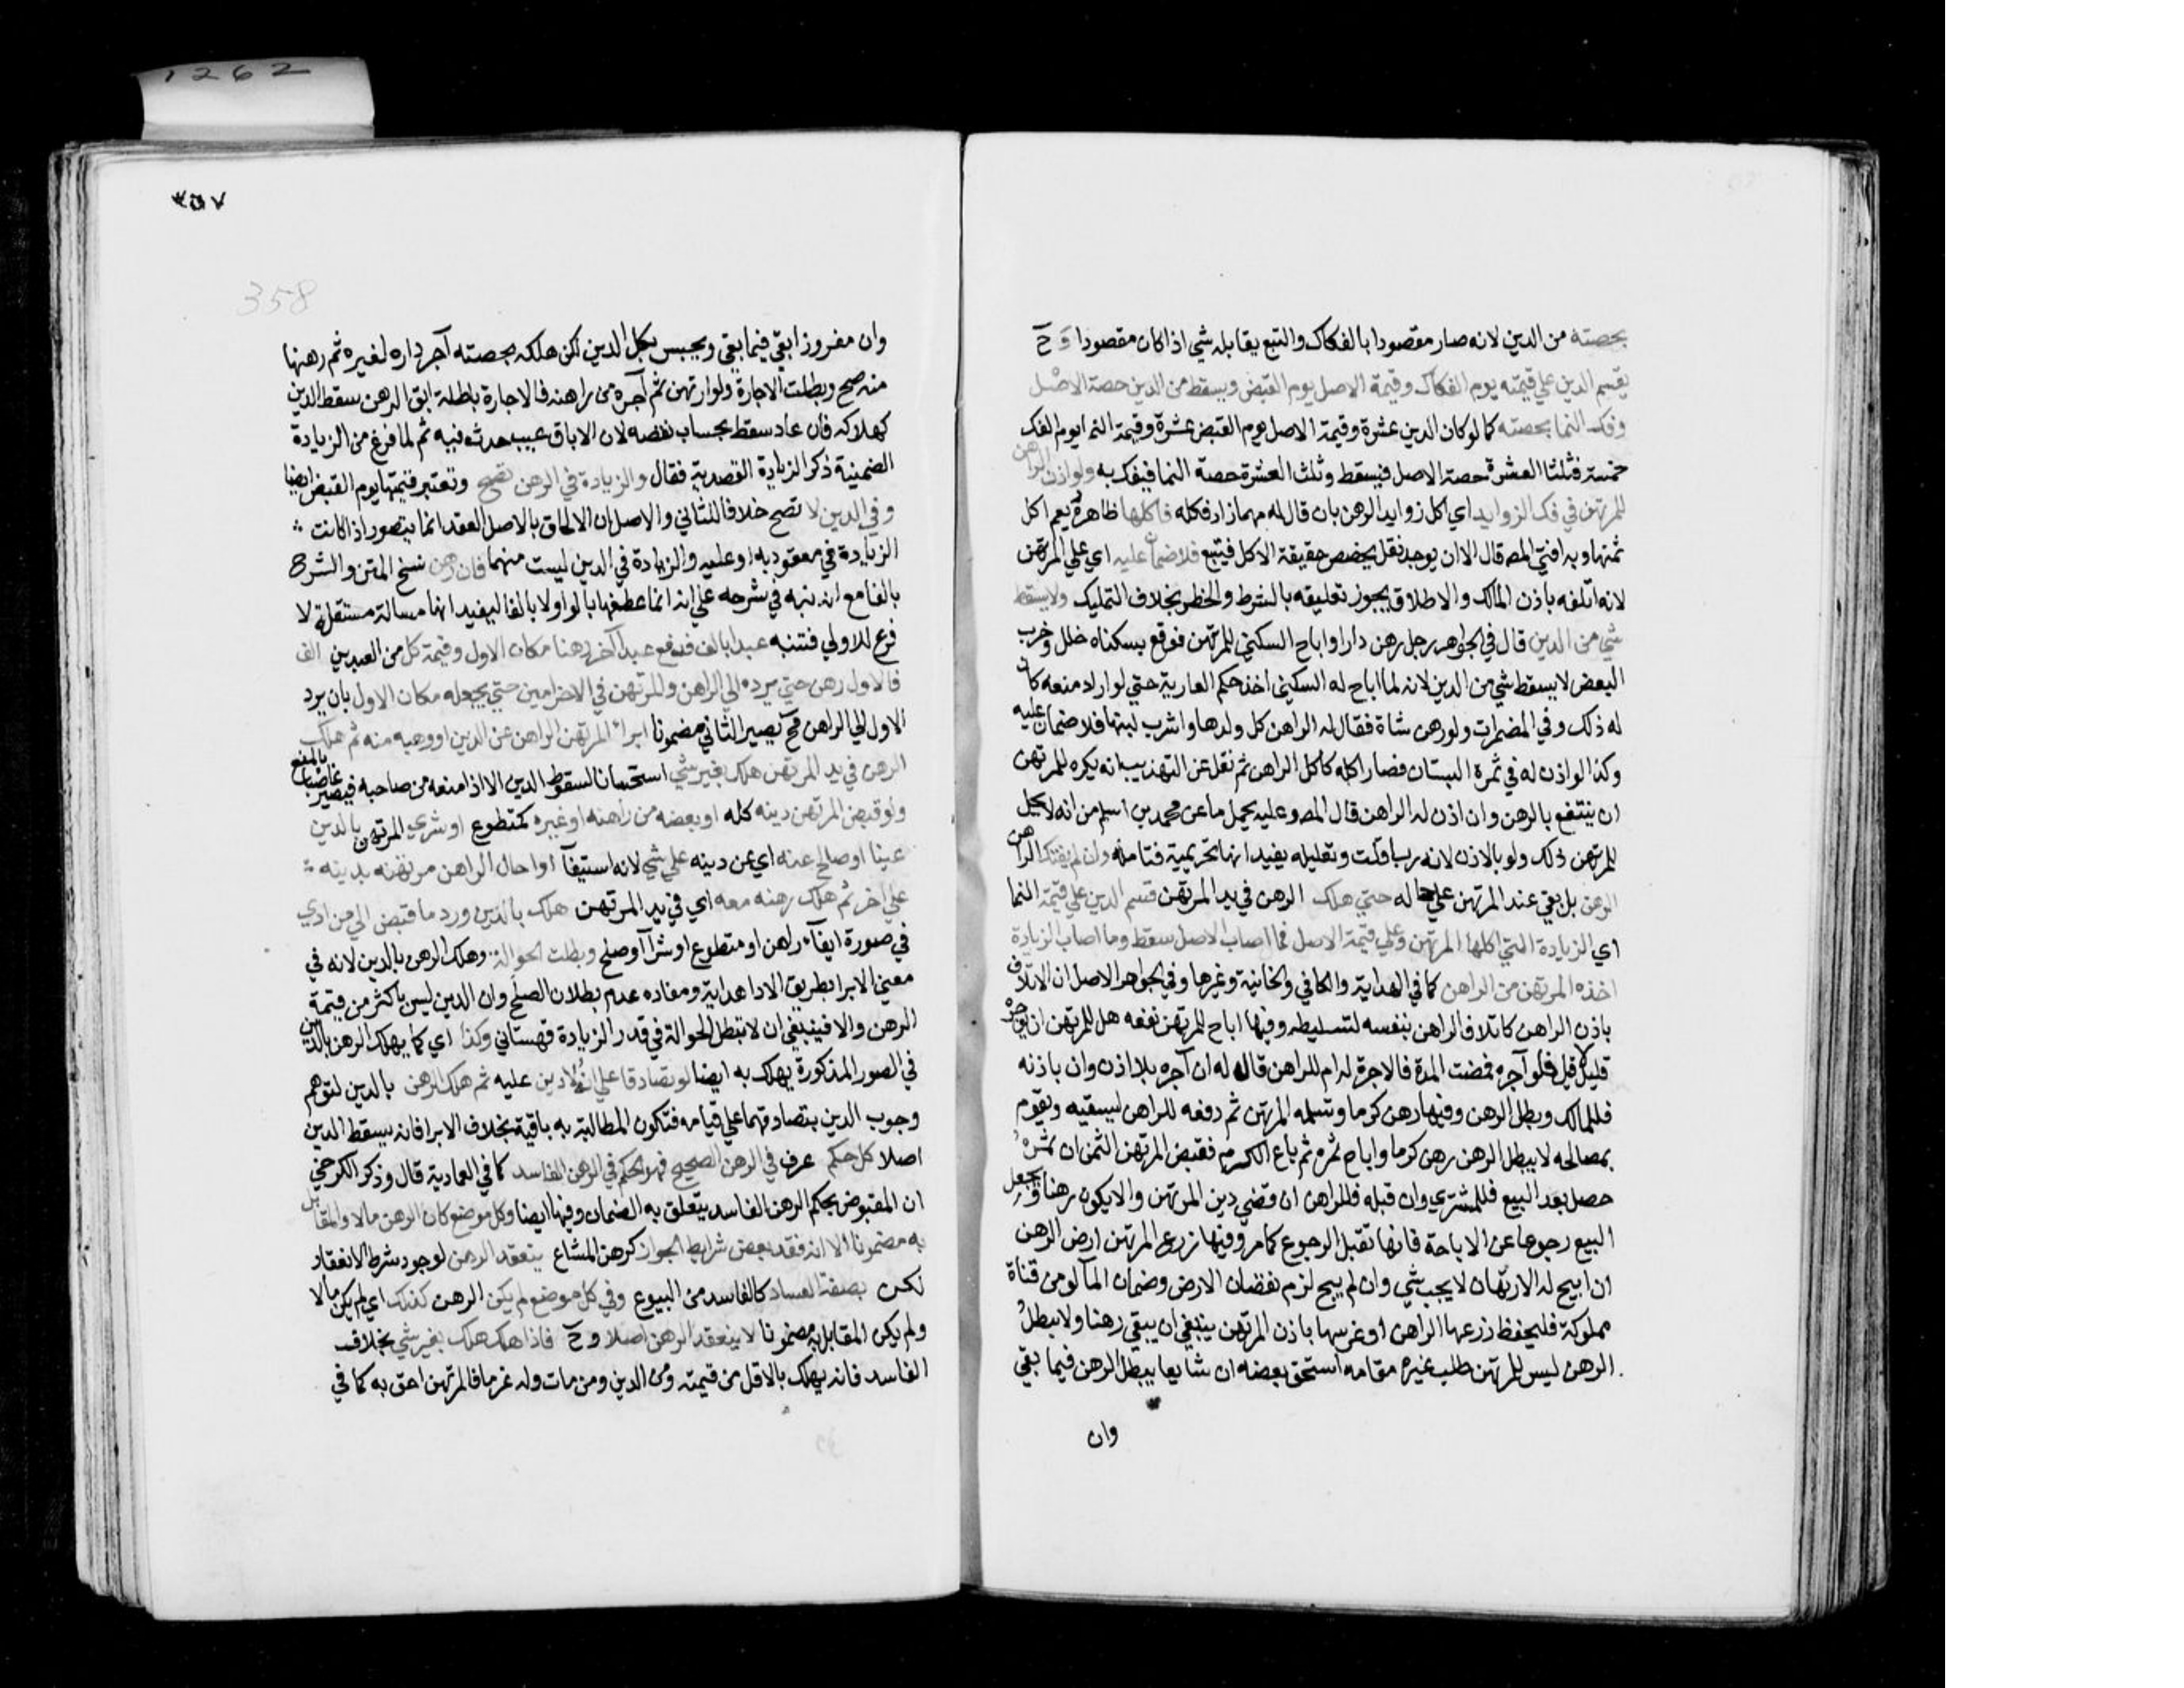 بحصته من الدين لانه صار مقصودا بالفكاك والتبع يقابله شي اذا كان مقصودا وح
يقسم الدين علي قيمته يوم الفكاك وقيمة الاصل يوم القبض ويسقط من الدين حصة الاصل
وفك النما بحصته كما لو كان الدين عشرة وقيمة الاصل يوم القبض عشرة وقيمة النما يوم الفك
خمسة فثلثا العشرة حصة الاصل فيسقط وثلث العشرة حصة النما فيفك به ولو اذن الراهن
للمرتهن في فك الزوايد اي اكل زوايد الرهن بان قال له مهما زاد فكله فاكلها ظاهره يعم اكل
ثمنها وبه افتي المص قال الا ان يوجد نقل يخصص حقيقة الاكل فيتبع فلا ضمان عليه اي علي المرتهن
لانه اتلفه باذن المالك والاطلاق يجوز تعليقه بالشرط والخطر بخلاف التمليك ولا يسقط
شي من الدين قال في الجواهر رجل رهن دارا واباح السكني للمرتهن فوقع بسكناه خلل وخرب
البعض لا يسقط شي من الدين لانه لما اباح له السكني اخذ حكم العارية حتي لو اراد منعه كان
له ذلك وفي المضمرات ولو رهن شاة فقال له الراهن كل ولدها واشرب لبنها فلا ضمان عليه
وكذا لو اذن له في ثمرة البستان فصار اكله كاكل الراهن ثم نقل عن التهذيب انه يكره للمرتهن
ان ينتفع بالرهن وان اذن له الراهن قال المص وعليه يحمل ما عن محمد بن اسلم من انه لا يحل
للمرتهن ذلك ولو بالاذن لانه ربا قلت وتعليله يفيد انها تحريمية فتامله وان لم يفتك الراهن
الرهن بل بقي عند المرتهن علي حاله حتي هلك الرهن في يد المرتهن قسم الدين علي قيمة النما
اي الزيادة التي اكلها المرتهن وعلي قيمة الاصل فما اصاب الاصل سقط وما اصاب الزيادة
اخذه المرتهن من الراهن كما في الهداية والكافي والخانية وغيرها وفي الجواهر الاصل ان الاتلاف
باذن الراهن كاتلاف الراهن بنفسه لتسليطه وفيها اباح للمرتهن نفعه هل للمرتهن ان يوجره
قليل لا قيل فلو آجره فمضت المدة فالاجرة له ام للراهن قال له ان آجره بلا اذن وان باذنه
فللمالك وبطل الرهن وفيها رهن كرما وتسلمه المرتهن ثم دفعه للراهن ليسقيه ويقوم
بمصالحه لا يبطل الرهن رهن كرما واباح ثمره ثم باع الكرم فقبض المرتهن الثمن ان ثمره
حصل بعد البيع فللمشتري وان قبله فللراهن ان قضي دين المرتهن والا يكون رهنا ويجعل
البيع رجوعا عن الاباحة فانها تقبل الرجوع كما مر وفيها زرع المرتهن ارض الرهن
ان ابيح له الارتهان لا يجب شي وان لم يبح لزم نقصان الارض وضمان المآ لو من قناة
مملوكة فليحفظ زرعها الراهن او غرسها باذن المرتهن ينبغي ان يبقي رهنا ولا يبطل
الرهن ليس للمرتهن طلب غيره مقامه استحق بعضه ان شايعا يبطل الرهن فيما بقي
وان
٣٥٧
358
1262
وان مفروزا بقي فيما بقي ويحبس بكل الدين لكن هلكه بحصته آجر داره لغيره ثم رهنها
منه صح وبطلت الاجارة ولو ارتهن ثم آجره من راهنه فالاجارة باطلة ابق الرهن سقط الدين
كهلاكه فان عاد سقط بحساب نقصه لان الاباق عيب حدث فيه ثم لما فرغ من الزيادة
الضمنية ذكر الزيادة القصدية فقال والزيادة في الرهن تصح وتعتبر قيمتها يوم القبض ايضا
وفي الدين لا تصح خلافا للثاني والاصل ان الالحاق بالاصل العقد انما يتصور اذا كانت
الزيادة في معقود به او عليه والزيادة في الدين ليست منهما فان رهن نسخ المتن والشرح
بالفا مع انه نبه في شرحه علي انه انما عطفها بالواو لا بالفا ليفيد انها مسالة مستقلة لا
فرع للاولي فتنبه عبدا بالف فدفع عبدا آخر رهنا مكان الاول وقيمة كل من العبدين الف
فالاول رهن حتي يرده الي الراهن والمرتهن في الاخر امين حتي يجعله مكان الاول بان يرد
الاول الي الراهن فح يصير الثاني مضمونا ابراء المرتهن الراهن عن الدين او وهبه منه ثم هلك
الرهن في يد المرتهن هلك بغير شي استحسانا لسقوط الدين الا اذا منعه من صاحبه فيصير غاصبا بالمنع
ولو قبض المرتهن دينه كله او بعضه من راهنه او غيره كمتطوع او شري المرتهن بالدين
عينا او صالح عنه اي عن دينه علي شي لانه استيفآ او احال الراهن مرتهنه بدينه
علي اخر ثم هلك رهنه معه اي في يد المرتهن هلك بالدين ورد ما قبض الي من ادي
في صورة ايفآء راهن او متطوع او شرآ او صلح وبطلت الحوالة وهلك الرهن بالدين لانه في
معني الابرا بطريق الادا هداية ومفاده عدم بطلان الصلح وان الدين ليس باكثر من قيمة
الرهن والا فينبغي ان لا تبطل الحوالة في قدر الزيادة قهستاني وكذا اي كما يهلك الرهن بالدين
في الصور المذكورة يهلك به ايضا لو تصادقا علي ان لا دين عليه ثم هلك الرهن بالدين لتوهم
وجوب الدين بتصادقهما علي قيامه فتكون المطالبة به باقية بخلاف الابرا فانه يسقط الدين
اصلا كل حكم عرف في الرهن الصحيح فهو الحكم في الرهن الفاسد كما في العمادية قال وذكر الكرخي
ان المقبوض بحكم الرهن الفاسد يتعلق به الضمان وفيها ايضا وكل موضع كان الرهن مالا والمقابل
به مضمونا الا انه فقد بعض شرايط الجواز كرهن المشاع ينعقد الرهن لوجود شرط الانعقاد
لكن بصفة الفساد كالفاسد من البيوع وفي كل موضع لم يكن الرهن كذلك اي لم يكن مالا
ولم يكن المقابل به مضمونا لا ينعقد الرهن اصلا وح فاذا هلك هلك بغير شي بخلاف
الفاسد فانه يهلك بالاقل من قيمته ومن الدين ومن مات وله غرما فالمرتهن احق به كما في